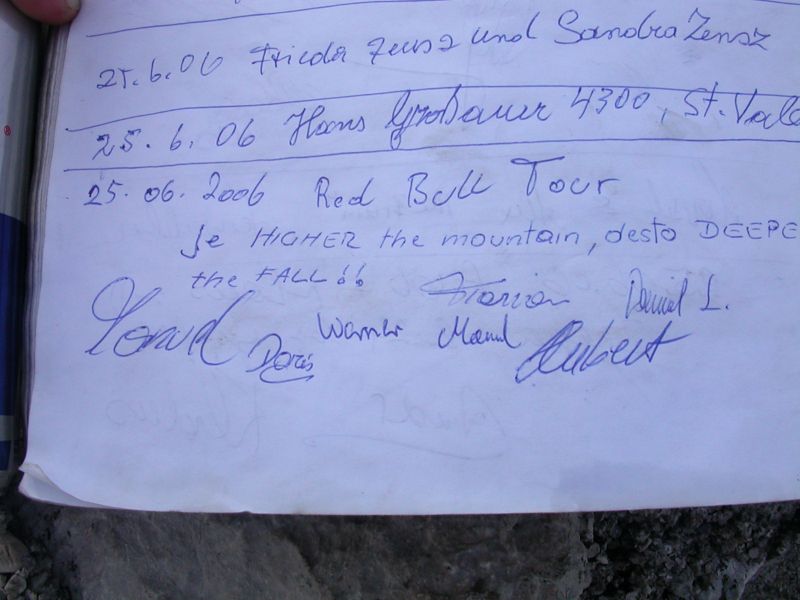 25.6.06 Frieda Zensz und Sandra Zensz
25.6.06 Hans Großauer 4300, St. Vale
25.06.2006 Red Bull Tour
Je HIGHER the mountain, desto DEEPE
the FALL!!
Florian Daniel L.
Doris Werner Manuel Hubert